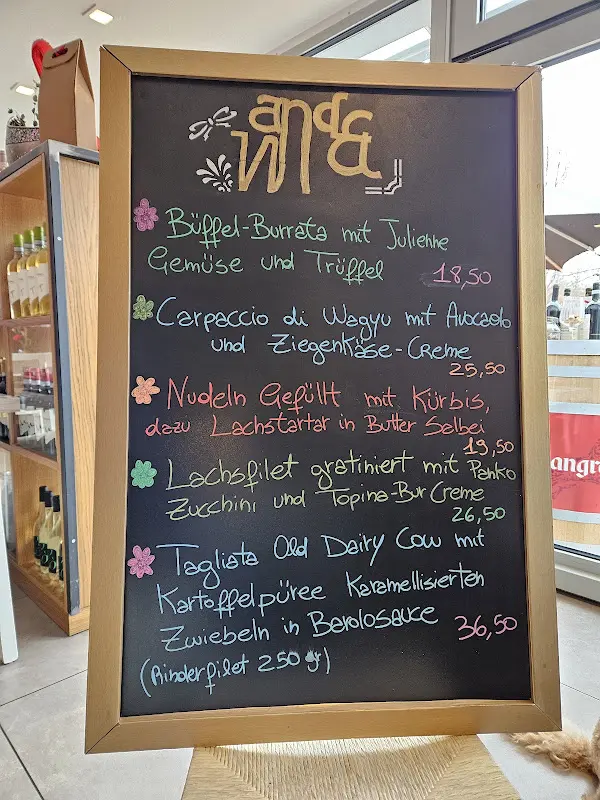 Büffel-Burrata mit Julienne
Gemüse und Trüffel 18,50
Carpaccio di Wagyu mit Avocado
und Ziegenkäse-Creme
25,50
Nudeln Gefüllt mit Kürbis,
dazu Lachstartar in Butter Selbei
19,50
Lachsfilet gratiniert mit Panko
Zucchini und Topina-Bur Creme
26,50
Tagliata Old Dairy Cow mit
Kartoffelpüree Karamellisierten
Zwiebeln in Barolosauce 36,50
(Rinderfilet 250 gr)